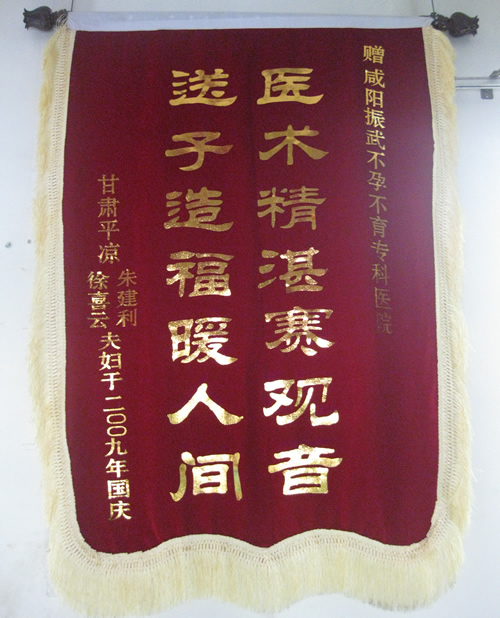 赠 咸阳振武不孕不育专科医院
医术精湛赛观音
送子造福暖人间
甘肃平凉
朱建利
徐喜云
夫妇于二〇〇九年国庆